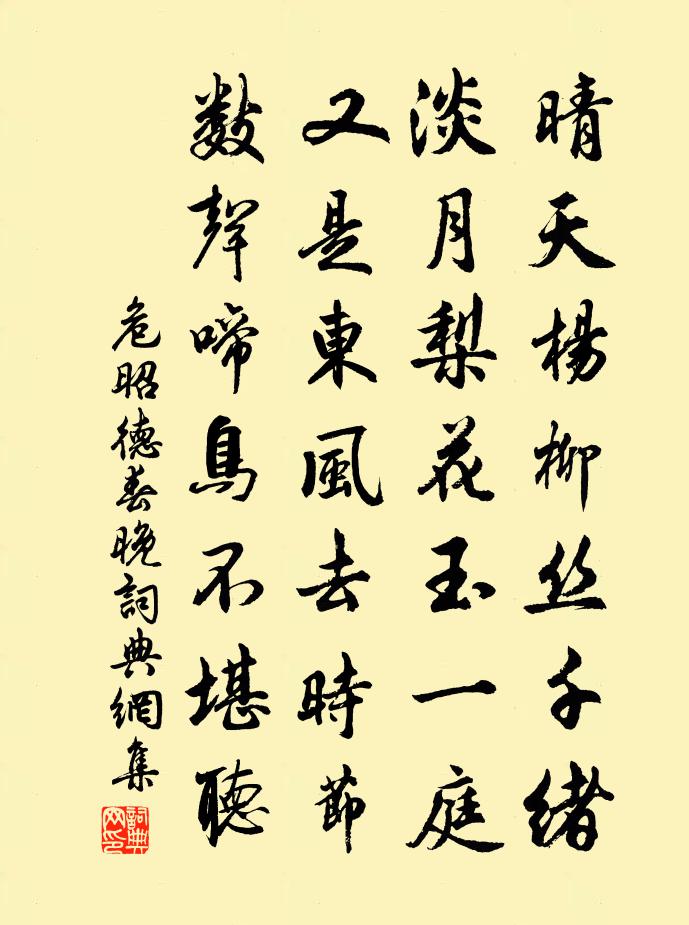 晴天楊柳丝千緒
淡月梨花玉一庭
又是東風去時節
數聲啼鳥不堪聽
危昭德春晚詞典網集
詞典网印